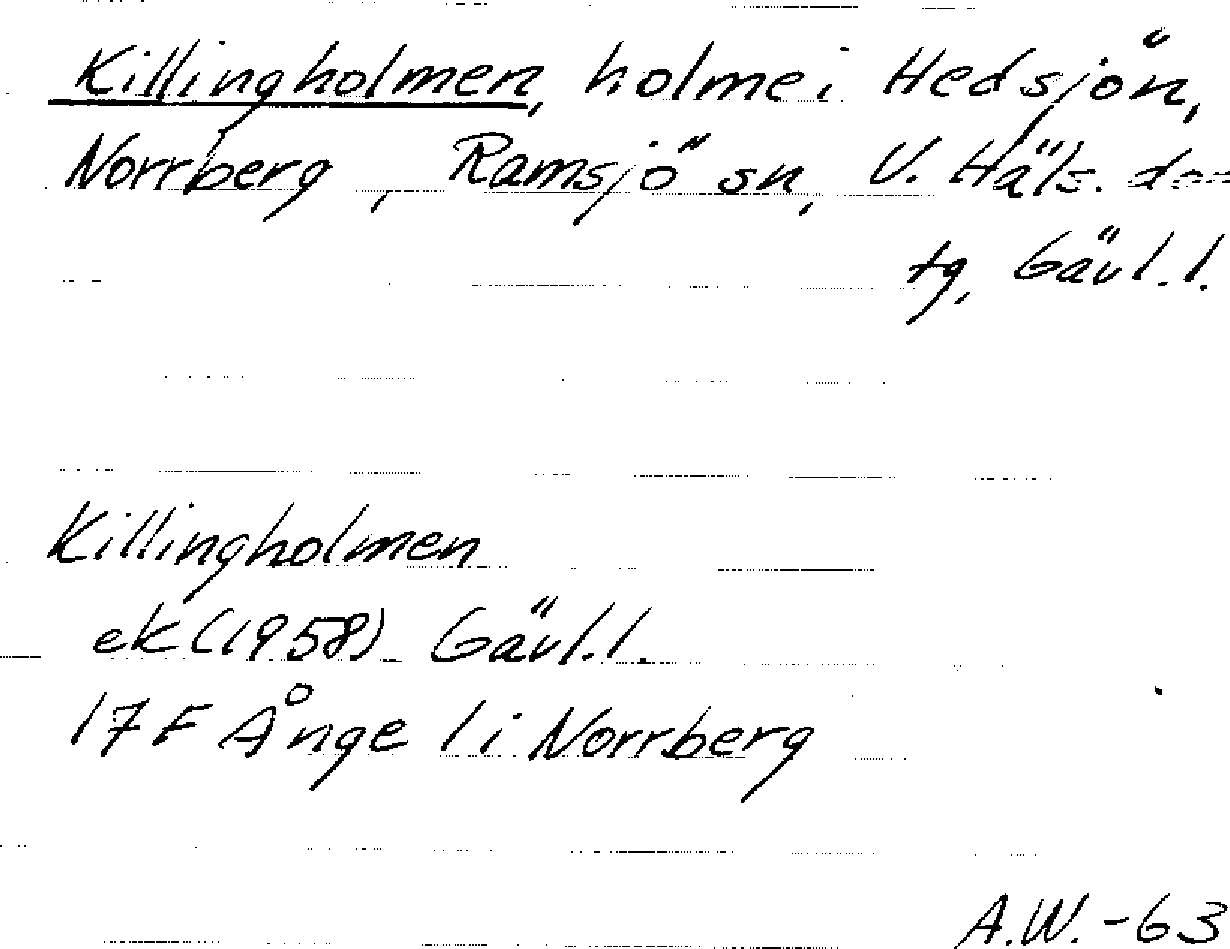 Killingholmen, holme i Hedsjön,
Norrberg, Ramsjö sn, V. Häls. dom
tg, Gävl. l.
Killingholmen
ek (1958) Gävl. l.
17F Ånge 1 i Norrberg
A.W. -63